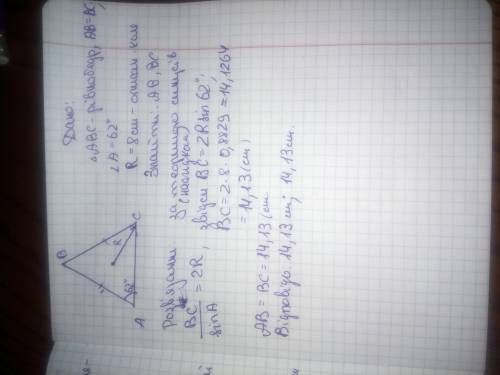 Дано:
△ABC - рівнобедр, AB=BC,
∠A = 62°
R = 8см - описан. коле
Знайти: AB, BC
B
R
62°
A
C
Розв'язання
за теоремою синусів
(наслідком)
BC/sinA = 2R,
звідси BC = 2R sin 62°,
BC = 2·8·0,8829 = 14,1264
= 14,13 (см)
AB = BC = 14,13 (см
Відповідь 14,13 см; 14,13 см.